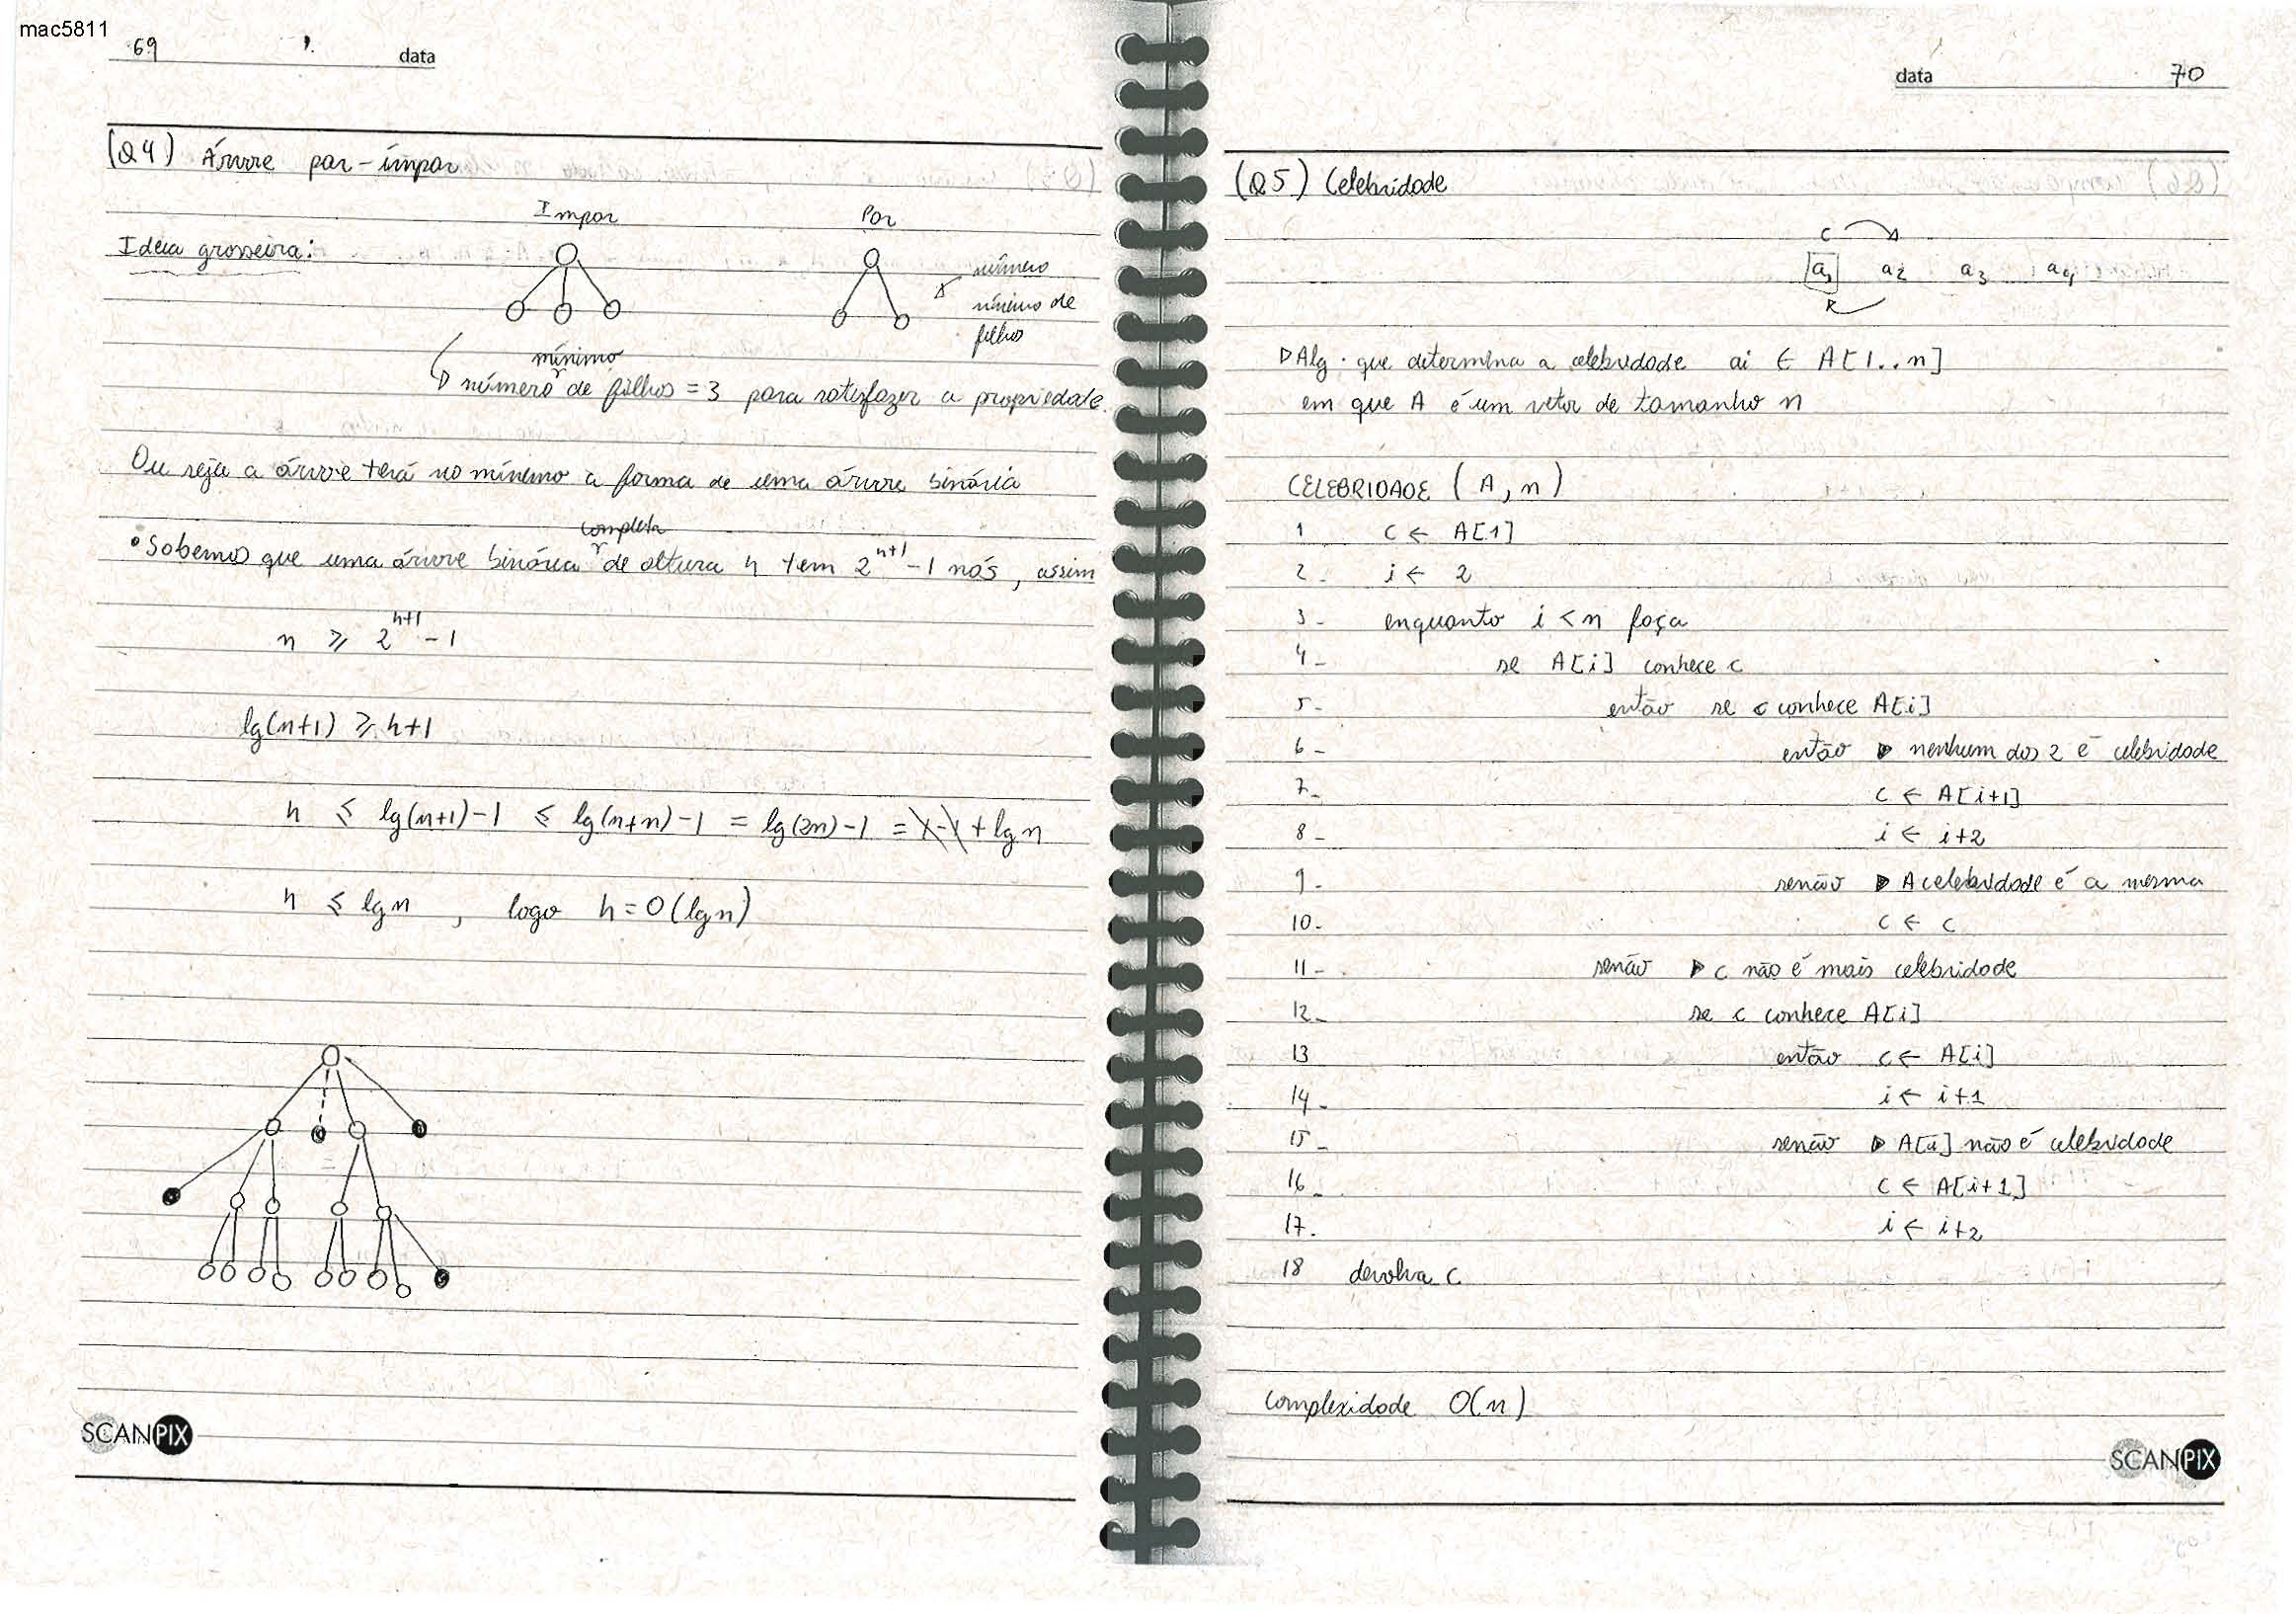 mac5811
69 data
(Q4) Árvore par-ímpar
Impar Par
Ideia grosseira:
número
mínimo de
filhos
mínimo
número de filhos = 3 para satisfazer a propriedade.
Ou seja a árvore terá no mínimo a forma de uma árvore binária
completa
• Sabemos que uma árvore binária de altura h tem 2^{h+1} - 1 nós, assim
n ⩾ 2^{h+1} - 1
lg(n+1) ⩾ h+1
h ⩽ lg(n+1)-1 ⩽ lg(n+n)-1 = lg(2n)-1 = 1-1 + lg n
h ⩽ lg n , logo h = O(lg n)
SCANPIX
data 70
(Q5) Celebridade
C
a1 a2 a3 a4
R
▷ Alg. que determina a celebridade ai ∈ A[1..n]
em que A é um vetor de tamanho n
CELEBRIDADE (A, n)
1 c ← A[1]
2. i ← 2
3- enquanto i < n faça
4- se A[i] conhece c
5- então se c conhece A[i]
6- então ▷ nenhum dos 2 é celebridade
7- c ← A[i+1]
8- i ← i+2
9- senão ▷ A celebridade é a mesma
10- c ← c
11- senão ▷ c não é mais celebridade
12- se c conhece A[i]
13 então c ← A[i]
14- i ← i+1
15- senão ▷ A[i] não é celebridade
16- c ← A[i+1]
17. i ← i+2
18 devolva c
Complexidade O(n)
SCANPIX